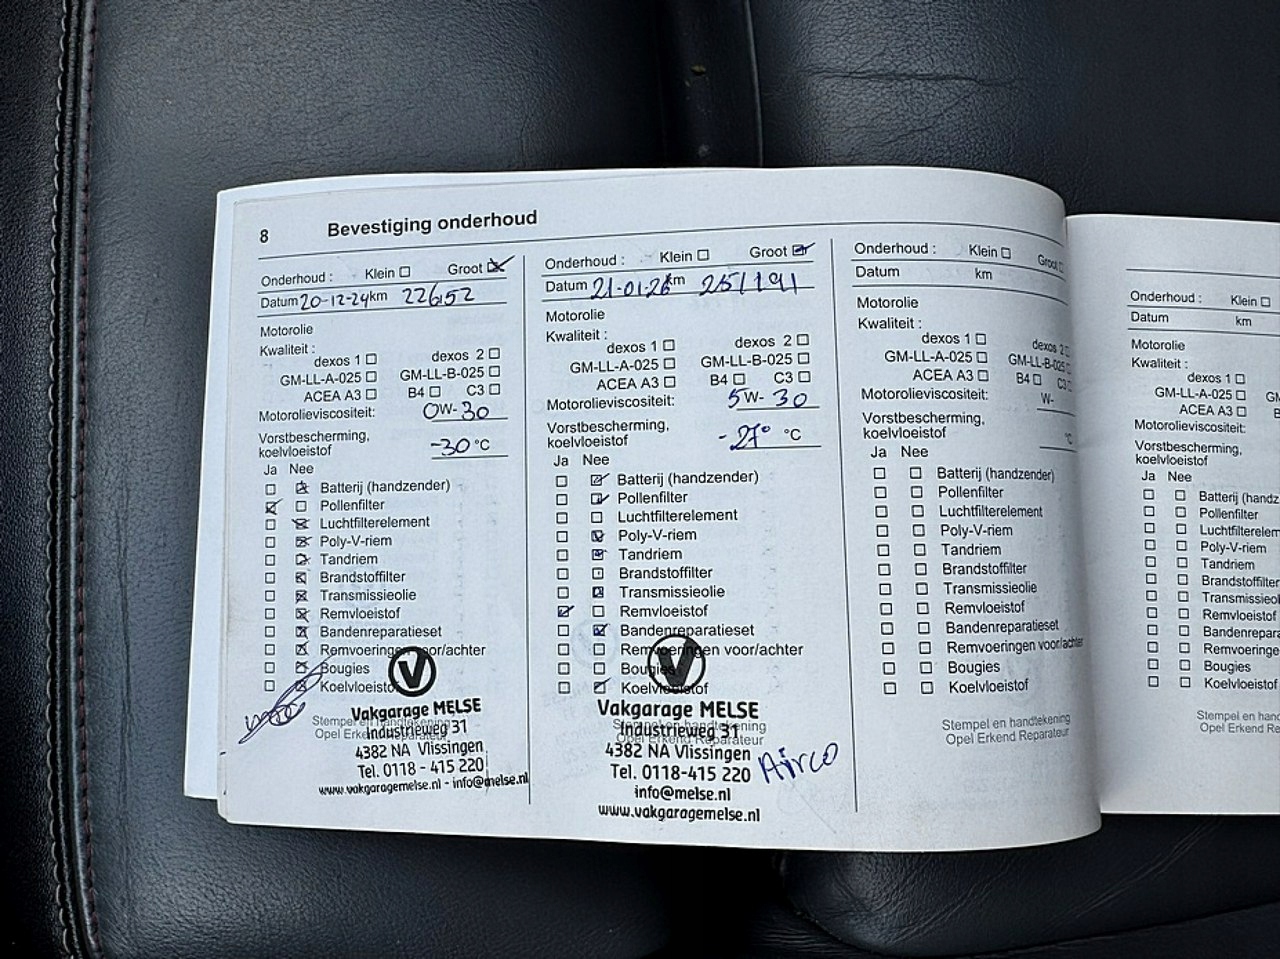 8 Bevestiging onderhoud
Onderhoud : Klein Groot
Datum 20-12-24 km 226152
Motorolie
Kwaliteit :
dexos 1 dexos 2
GM-LL-A-025 GM-LL-B-025
ACEA A3 B4 C3
Motorolieviscositeit: 0W-30
Vorstbescherming,
koelvloeistof -30 °C
Ja Nee
Batterij (handzender)
Pollenfilter
Luchtfilterelement
Poly-V-riem
Tandriem
Brandstoffilter
Transmissieolie
Remvloeistof
Bandenreparatieset
Remvoeringen voor/achter
Bougies
Koelvloeistof
Stempel en handtekening
Opel Erkend Reparateur
Vakgarage MELSE
Industrieweg 31
4382 NA Vlissingen
Tel. 0118 - 415 220
www.vakgaragemelse.nl - info@melse.nl
Onderhoud : Klein Groot
Datum 21-01-26 km 251191
Motorolie
Kwaliteit :
dexos 1 dexos 2
GM-LL-A-025 GM-LL-B-025
ACEA A3 B4 C3
Motorolieviscositeit: 5W-30
Vorstbescherming,
koelvloeistof -27° °C
Ja Nee
Batterij (handzender)
Pollenfilter
Luchtfilterelement
Poly-V-riem
Tandriem
Brandstoffilter
Transmissieolie
Remvloeistof
Bandenreparatieset
Remvoeringen voor/achter
Bougies
Koelvloeistof
Stempel en handtekening
Opel Erkend Reparateur
Vakgarage MELSE
Industrieweg 31
4382 NA Vlissingen
Tel. 0118-415 220
info@melse.nl
www.vakgaragemelse.nl
Airco
Onderhoud : Klein Groot
Datum km
Motorolie
Kwaliteit :
dexos 1 dexos 2
GM-LL-A-025 GM-LL-B-025
ACEA A3 B4 C3
Motorolieviscositeit: W-
Vorstbescherming,
koelvloeistof °C
Ja Nee
Batterij (handzender)
Pollenfilter
Luchtfilterelement
Poly-V-riem
Tandriem
Brandstoffilter
Transmissieolie
Remvloeistof
Bandenreparatieset
Remvoeringen voor/achter
Bougies
Koelvloeistof
Stempel en handtekening
Opel Erkend Reparateur
Onderhoud : Klein
Datum km
Motorolie
Kwaliteit :
dexos 1
GM-LL-A-025 GM
ACEA A3 B
Motorolieviscositeit:
Vorstbescherming,
koelvloeistof
Ja Nee
Batterij (handz
Pollenfilter
Luchtfilterelem
Poly-V-riem
Tandriem
Brandstoffilter
Transmissieol
Remvloeistof
Bandenrepara
Remvoeringen
Bougies
Koelvloeistof
Stempel en hand
Opel Erkend Re